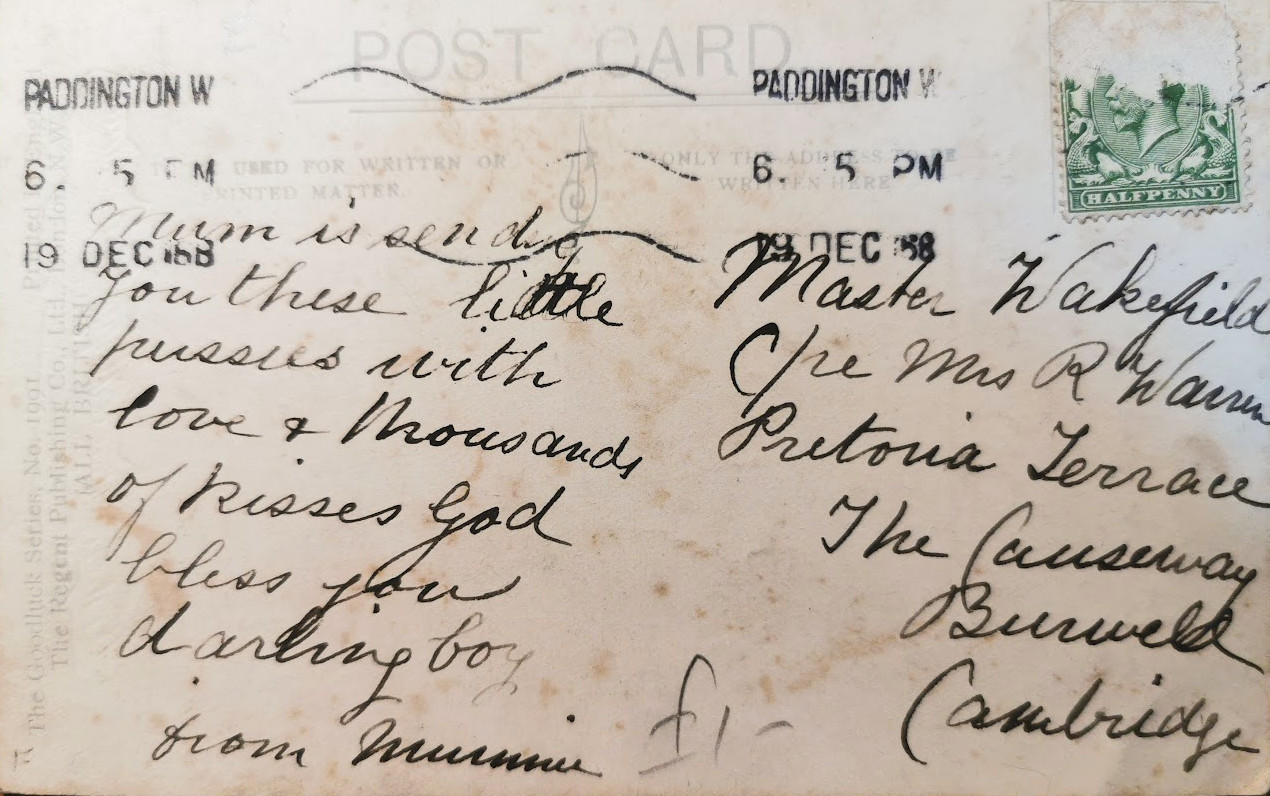 POST CARD
PADDINGTON W
PADDINGTON W
6. 5 PM
6. 5 PM
19 DEC
19 DEC
USED FOR WRITTEN OR
MATTER.
ONLY THE ADDRESS TO BE
WRITTEN HERE
HALFPENNY
Mum is send
you these little
pussies with
love & thousands
of kisses God
bless you
darling boy
from Mummie
Master Wakefield
C/re Mrs R Warren
Pretoria Terrace
The Causeway
Burwell
Cambridge
£1-
The Goodluck Series, No. 1991
The Regent Publishing Co., Ltd., London, N.W.
ALL BRITISH